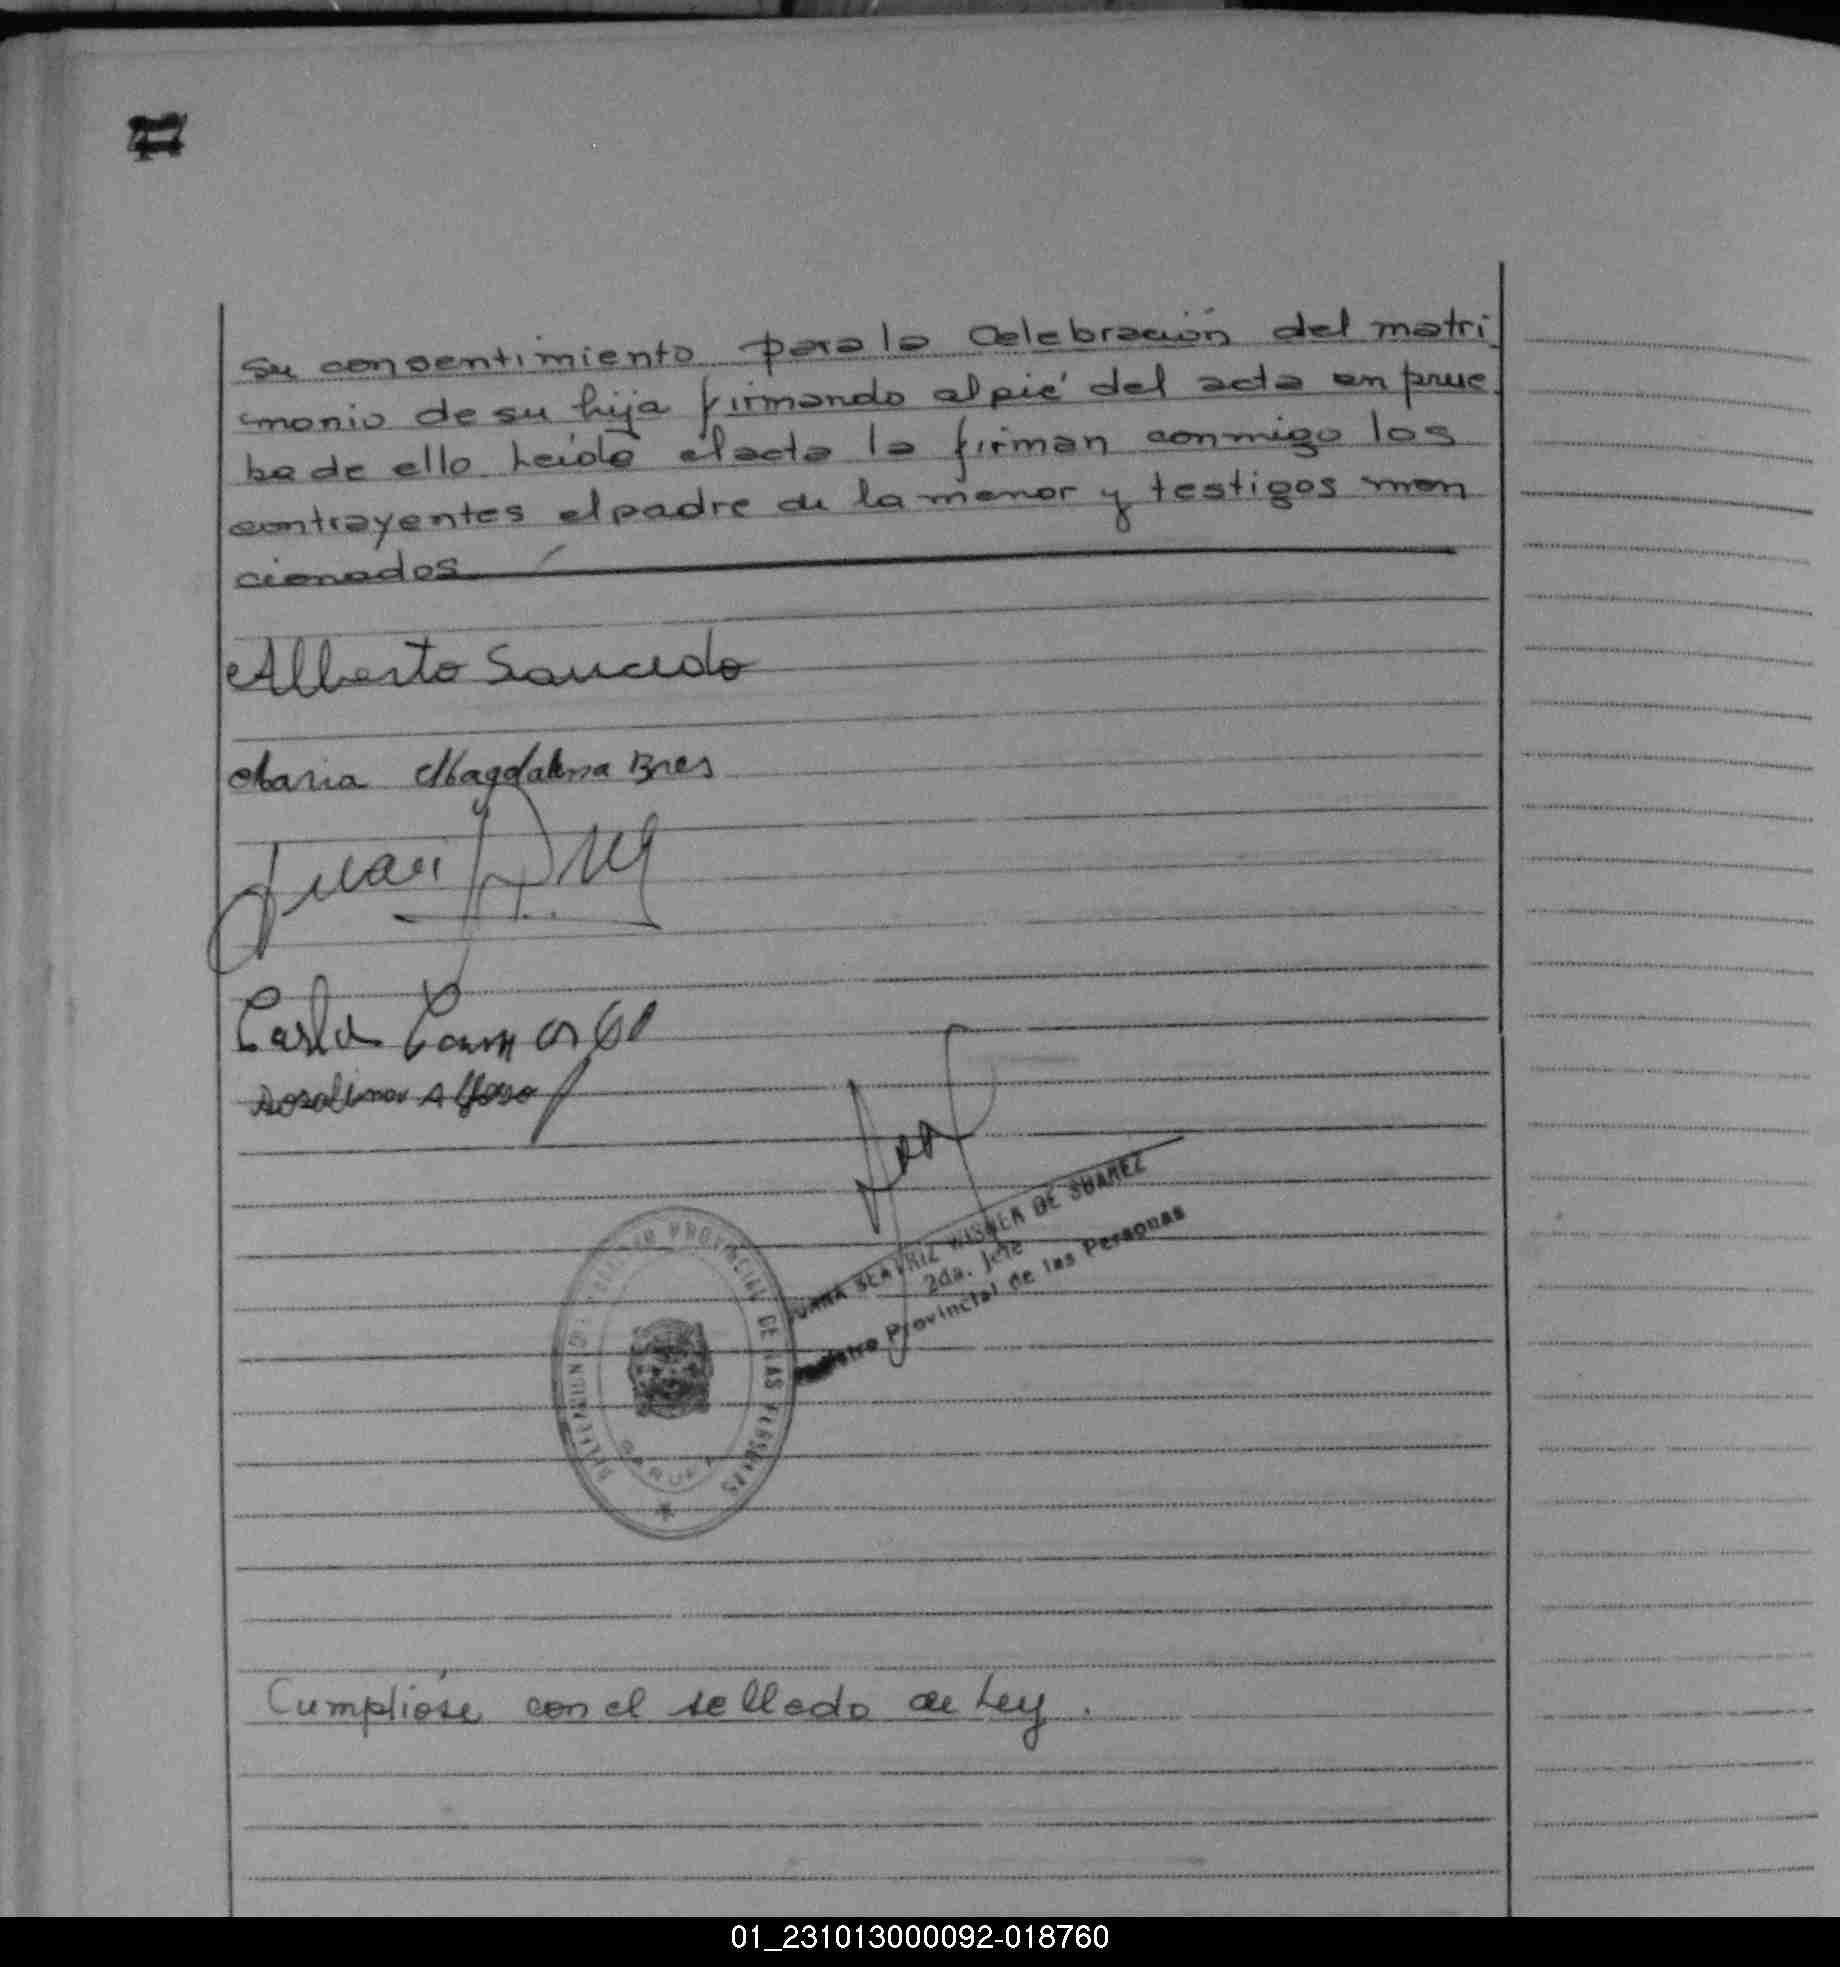 su consentimiento para la celebración del matri
monio de su hija firmando al pié del acta en prue
ba de ello Leída el acta la firman conmigo los
contrayentes el padre de la menor y testigos men
cionados
Alberto Saucedo
Maria Magdalena Bres
Juan
Carlos
JUANA BEATRIZ DE SUAREZ
2da. Jefe
Registro Provincial de las Personas
REGISTRO PROVINCIAL DE LAS PERSONAS
Cumplióse con el sellado de Ley.
01_231013000092-018760